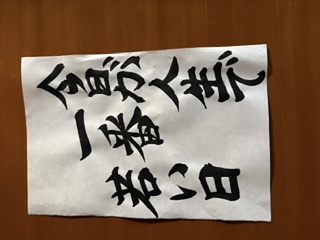 今日が人生で
一番
若い日